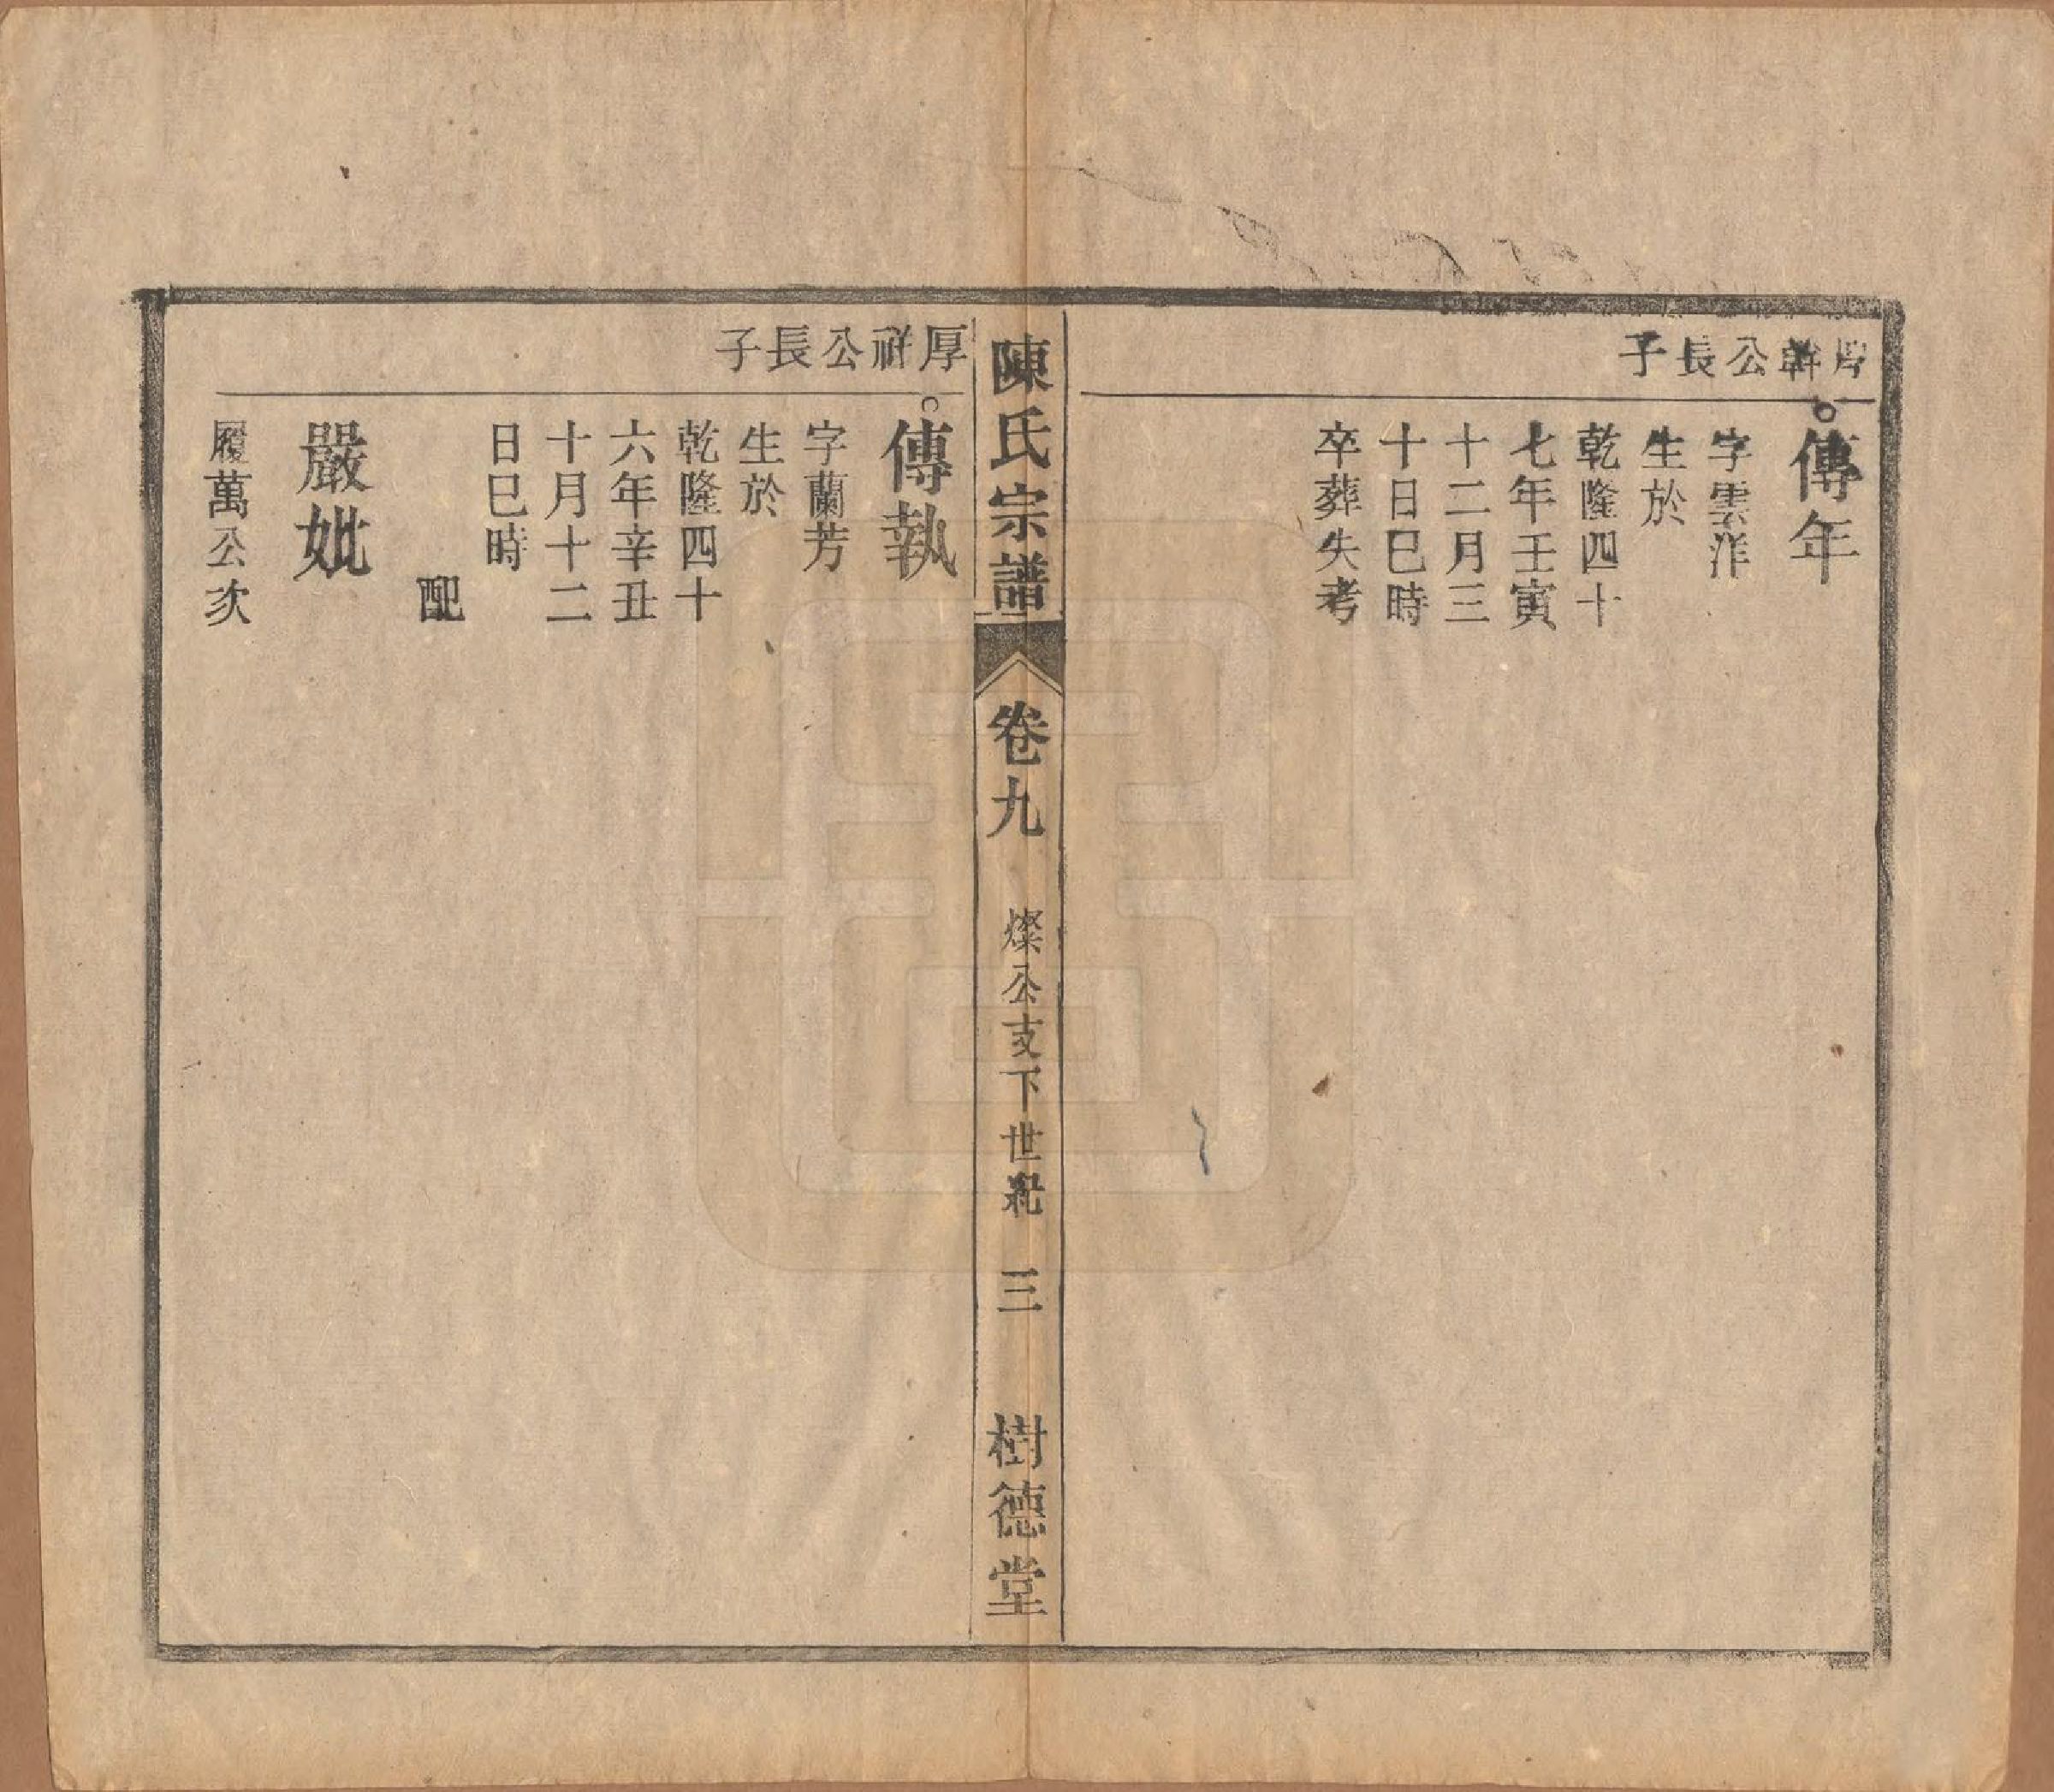 厚幹公長子
傳年
字雲洋
生於
乾隆四十
七年壬寅
十二月三
十日巳時
卒葬失考
陳氏宗譜
卷九
燦公支下世紀
三
樹德堂
厚祥公長子
傳執
字蘭芳
生於
乾隆四十
六年辛丑
十月十二
日巳時
配
嚴妣
履萬公次